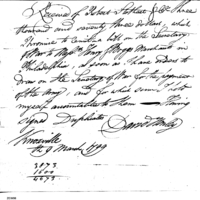 Received of Robert Stothart & Co Three
thousand and seventy three dollars, which
I promise to
on the Secretary
of War to Mr Henry
Merchants in
Philadelphia, as soon as I have orders to
draw on the Secretary of War for the payment
of the Army, and for which sum I hold
myself accountable to them — having
signed Duplicates
David Henley
Knoxville
9 March 1799
3073
1600
4673